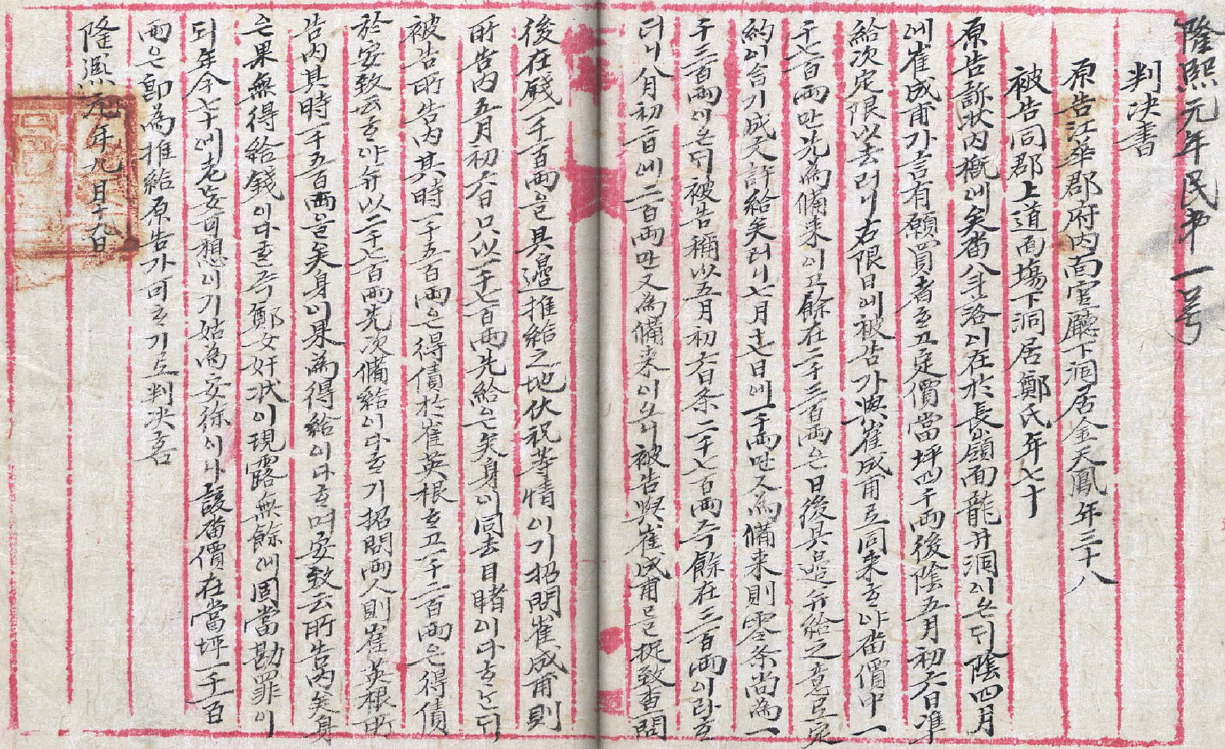 隆熙元年民事第一号
判决書
原告江華郡府內面官廳下洞居金天鳳年三十八
被告同郡上道面場下洞居鄭氏年七十
原告訴狀內槪에矣畓八斗落이在於長嶺面龍井洞이온디陰四月
에崔成甫가言有願買者고定價當坪四千兩後陰五月初六日準
給次定限以去러니右限日에被告가與崔成甫로同來야畓價中一
千七百兩만先為備来이고餘在二千三百兩은日後具邉亽給之意로定
約이기成文許給矣러니七月十七日에一千兩만又為備来則零条尚為一
千三百兩이온디被告稱以五月初六日条二千七百兩즉餘在三百兩이라
더니八月初二日에二百兩만又為備来이온니被告與崔成甫를捉致查問
後在錢一千一百兩을具邉推給之地伏祝等情이기招問崔成甫則
所告內五月初六日只以一千七百兩先給은矣身이同去目睹이다는디
被告所告內其時一千五百兩은得債於崔英根고一千二百兩은得債
於安致云야亽以二千七百兩先次備給이다기招問兩人則崔英根所
告內其時一千五百兩을矣身이果為得給이다며安致云所告內矣身
은果無得給錢이다즉鄭女奸状이現露無餘에固當勘罪이
되年今七十에老妄可想이기姑為安徐이나該畓價在當坪一千一百
兩은卽為推給原告가可기로判决喜
隆熙元年九月十六日